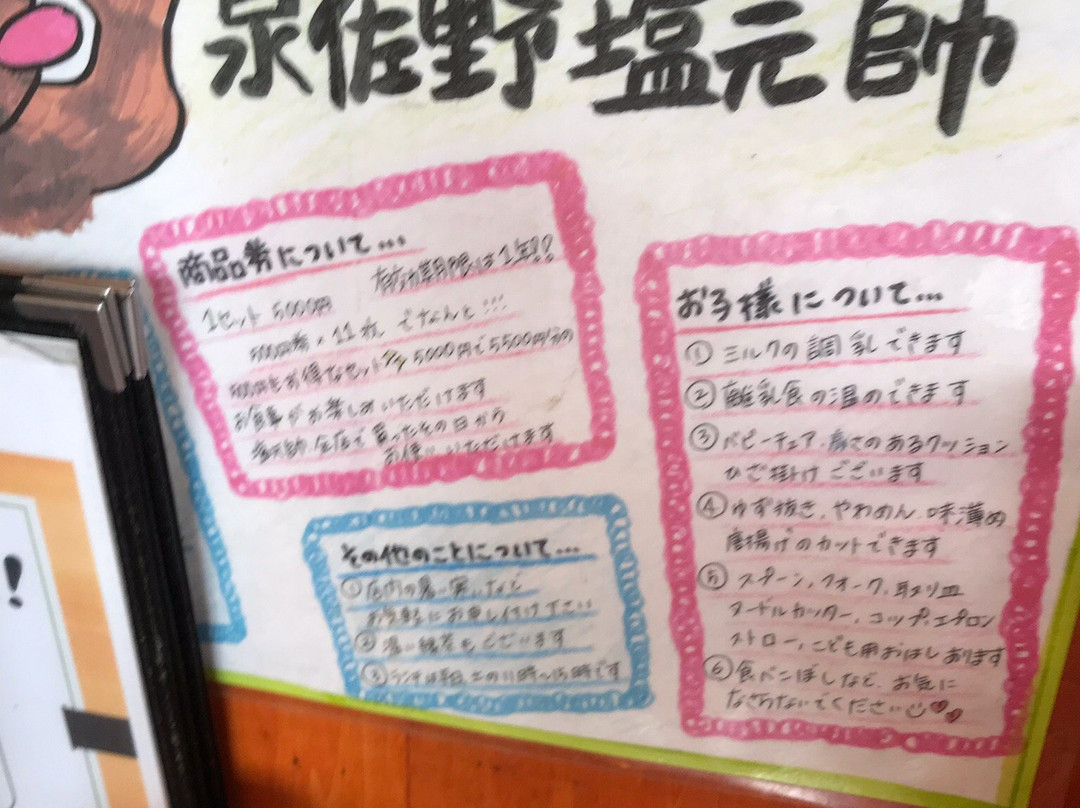 泉佐野塩元帥
商品券について…
有効期限は1年!!
1セット 5000円
500円券×11枚 でなんと!!!
500円もお得なセット 5000円で5500円分の
お食事がお楽しみいただけます
塩元帥全店で買ったその日から
お使いいただけます
その他のことについて…
①店内の暑い寒いなど
お気軽にお申し付け下さい
②温い緑茶もございます
③ランチは平日、土の11時〜15時です
お子様について…
①ミルクの調乳できます
②離乳食の温めできます
③ベビーチェア、高さのあるクッション
ひざ掛けございます
④ゆず抜き、やわめん、味薄め
唐揚げのカットできます
⑤スプーン、フォーク、取り皿
ヌードルカッター、コップ、エプロン
ストロー、こども用おはしあります
⑥食べこぼしなど、お気に
なさらないでください
!